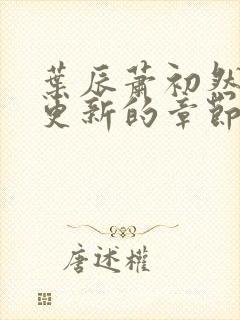 葉辰蕭初然
更新的章節
唐述權